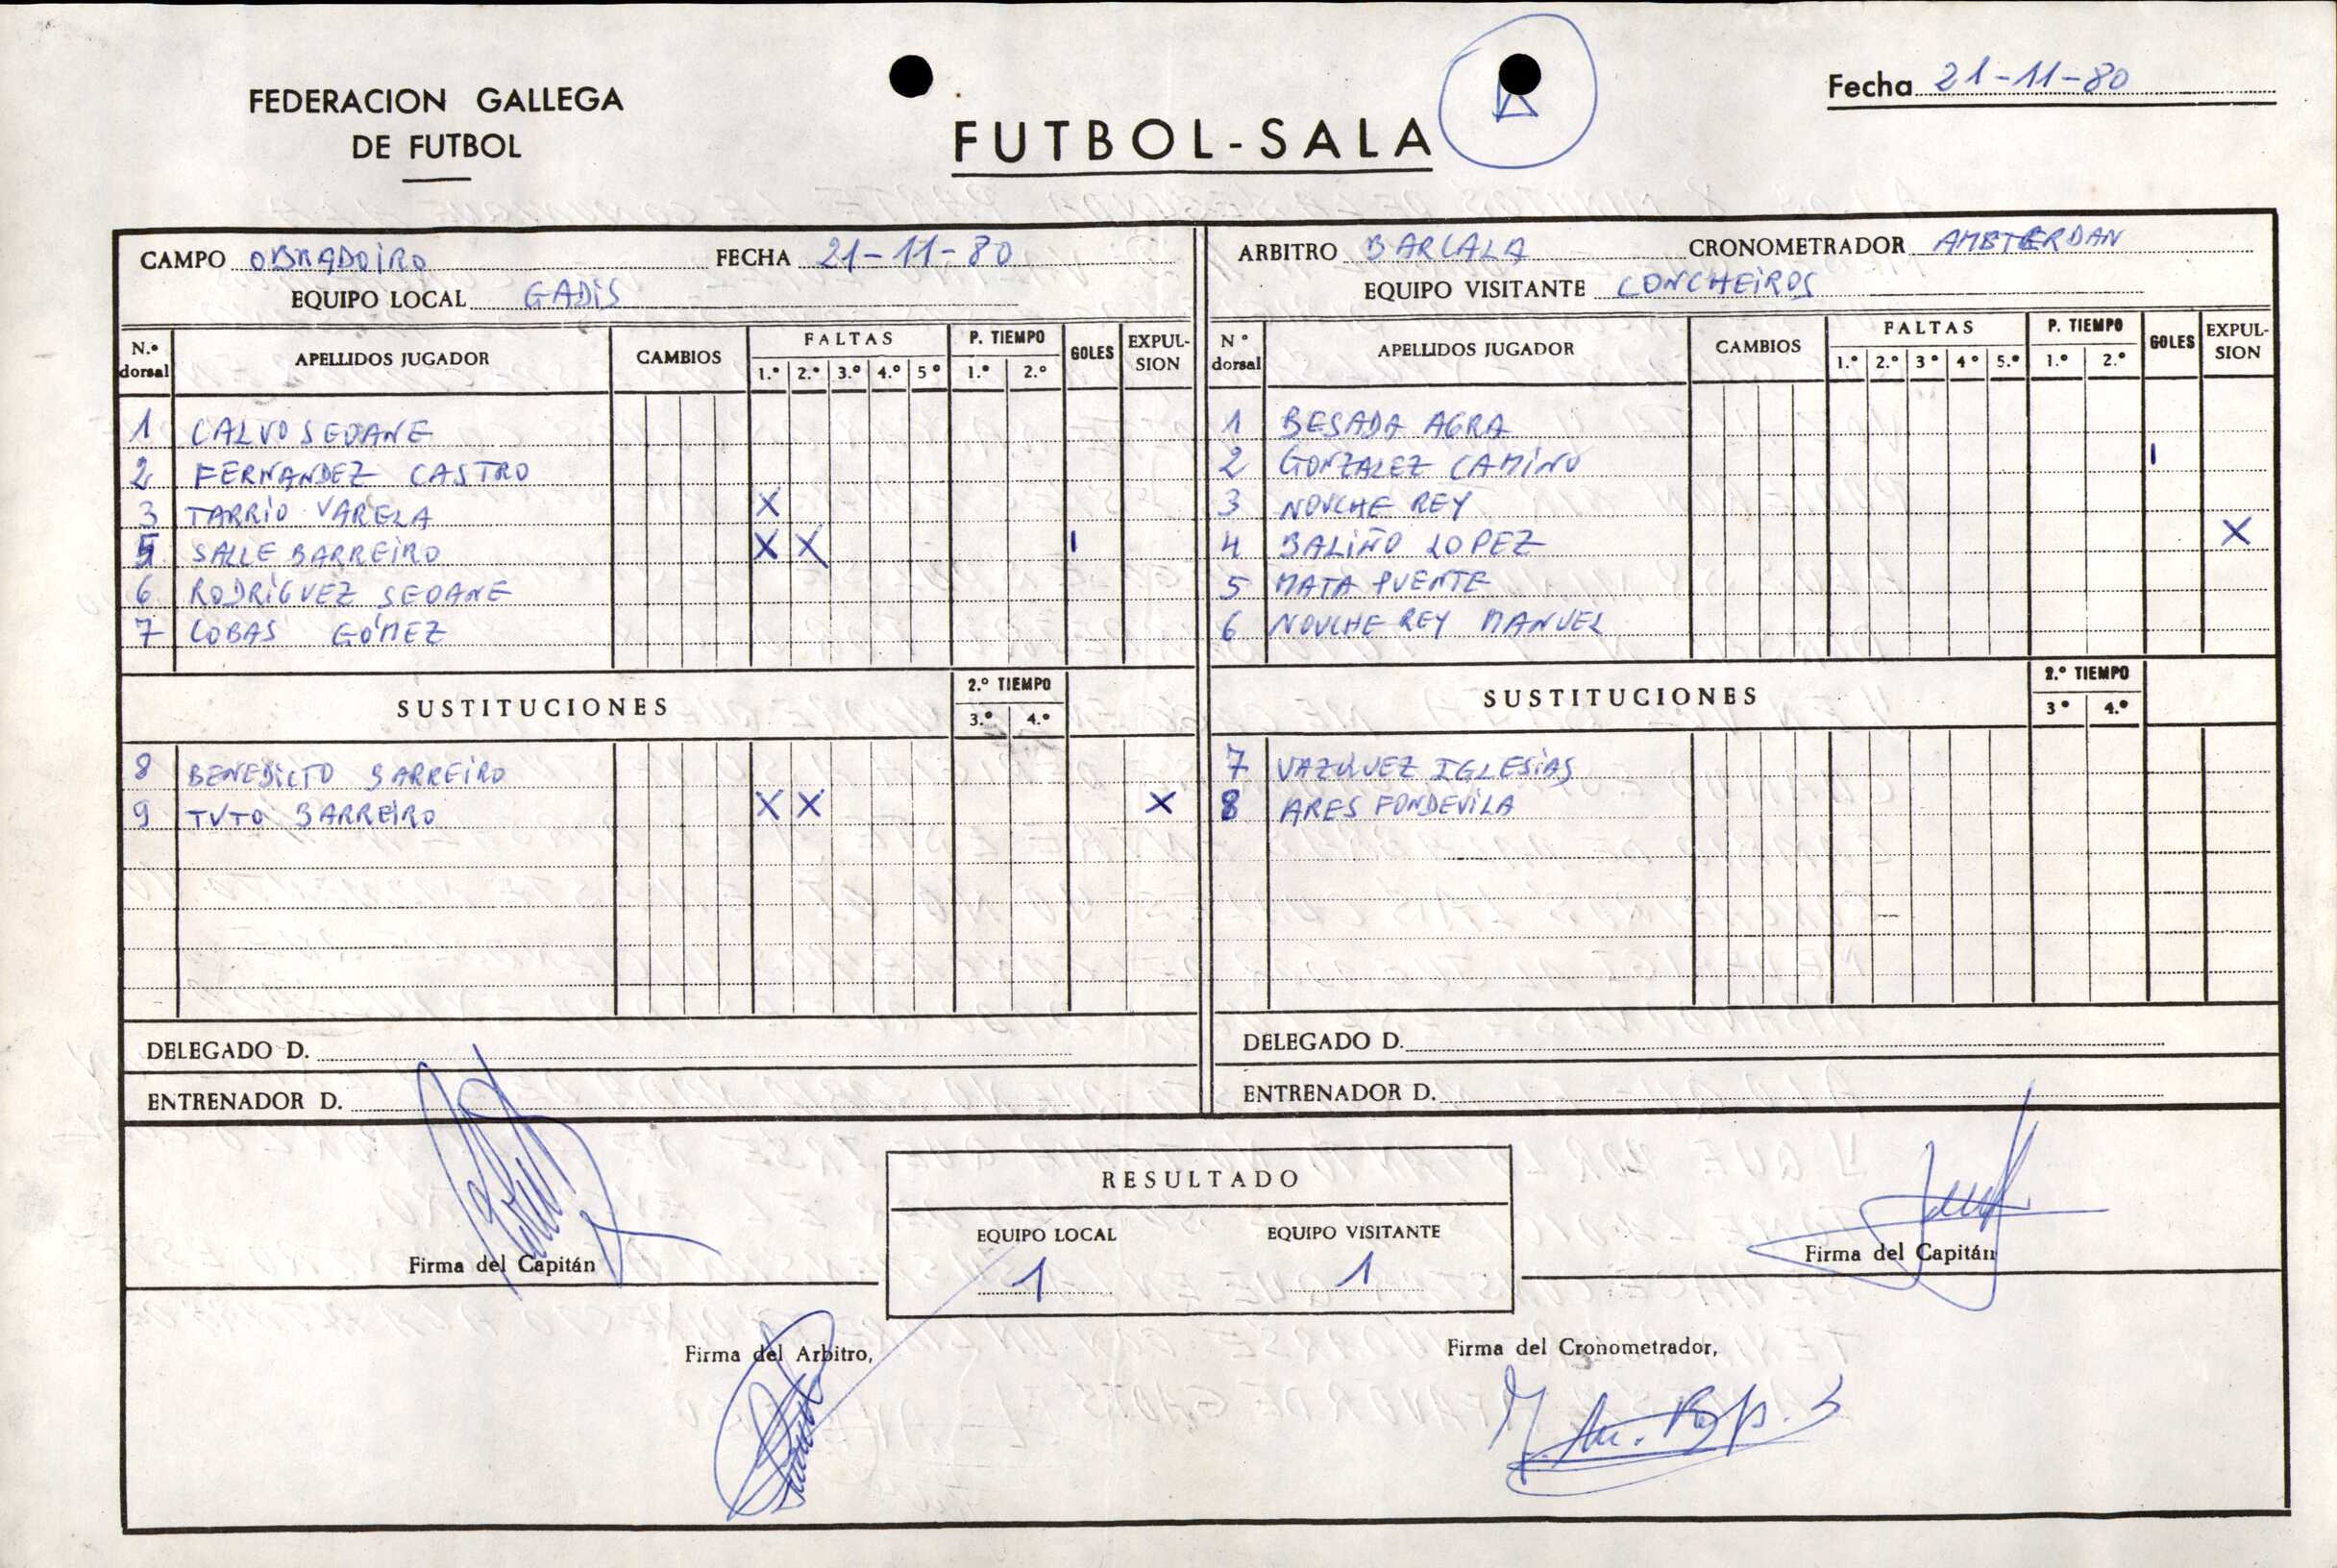 FEDERACION GALLEGA
DE FUTBOL
FUTBOL-SALA
Fecha 21-11-80
CAMPO OBRADOIRO FECHA 21-11-80
EQUIPO LOCAL GADIS
ARBITRO BARCALA CRONOMETRADOR AMSTERDAN
EQUIPO VISITANTE CONCHEIROS
N.º dorsal APELLIDOS JUGADOR CAMBIOS FALTAS 1.º 2.º 3.º 4.º 5º P. TIEMPO 1.º 2.º GOLES EXPUL-SION
1 CALVO SEOANE
2 FERNANDEZ CASTRO
3 TARRIO VARELA X
5 SALLE BARREIRO X X 1
6 RODRIGUEZ SEOANE
7 COBAS GÓMEZ
SUSTITUCIONES 2.º TIEMPO 3.º 4.º
8 BENEDICTO BARREIRO
9 TUTO BARREIRO X X X
DELEGADO D.
ENTRENADOR D.
Nº dorsal APELLIDOS JUGADOR CAMBIOS FALTAS 1.º 2.º 3º 4º 5.º P. TIEMPO 1.º 2.º GOLES EXPUL-SION
1 BESADA AGRA
2 GONZALEZ CAMINO 1
3 NOUCHE REY
4 BALIÑO LOPEZ X
5 MATA PUENTE
6 NOUCHE REY MANUEL
SUSTITUCIONES 2.º TIEMPO 3º 4.º
7 VAZQUEZ IGLESIAS
8 ARES FONDEVILA
DELEGADO D.
ENTRENADOR D.
Firma del Capitán
RESULTADO
EQUIPO LOCAL EQUIPO VISITANTE
1 1
Firma del Capitán
Firma del Arbitro,
Firma del Cronometrador,